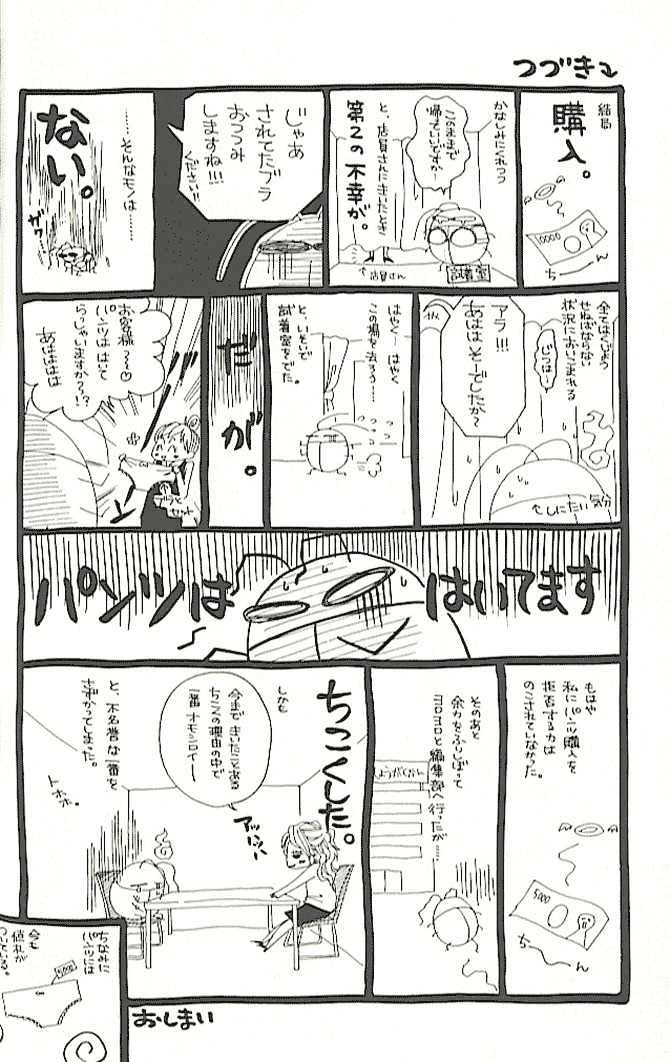 つづき
結局
購入。
10000
ちーん
かなしみにくれつつ
このままで
帰っていいですか…
と、店員さんにきいたとき
第2の不幸が。
店員さん
試着室
じゃあ
されてたブラ
おつつみ
しますね!!!
ください!!
……そんなモノは……
ない。
ガクッ
全てはくじょう
せねばならない
状況においこまれる
じつは…
アラ!!!
あははそーでしたか〜
しにたい気分
はやく… はやく
この場を去ろう…
と、いそいで
試着室をでた。
だが。
お客様〜〜♡
パンツははいて
らっしゃいますかーっ!?
あはははは
パンツは
はいてます
もはや
私にパンツ購入を
拒否する力は
のこされていなかった。
5000
ちーん
そのあと
余力をふりしぼって
ヨロヨロと編集部へ行ったが……
しょうがくかん
ちこくした。
しかも
今まできいたことある
ちこくの理由の中で
一番オモシロイー
アッハッハ
と、不名誉な一番を
さずかってしまった。
トホホ。
ちなみに
パンツには
今も
値札が
ついている。
5000
おしまい